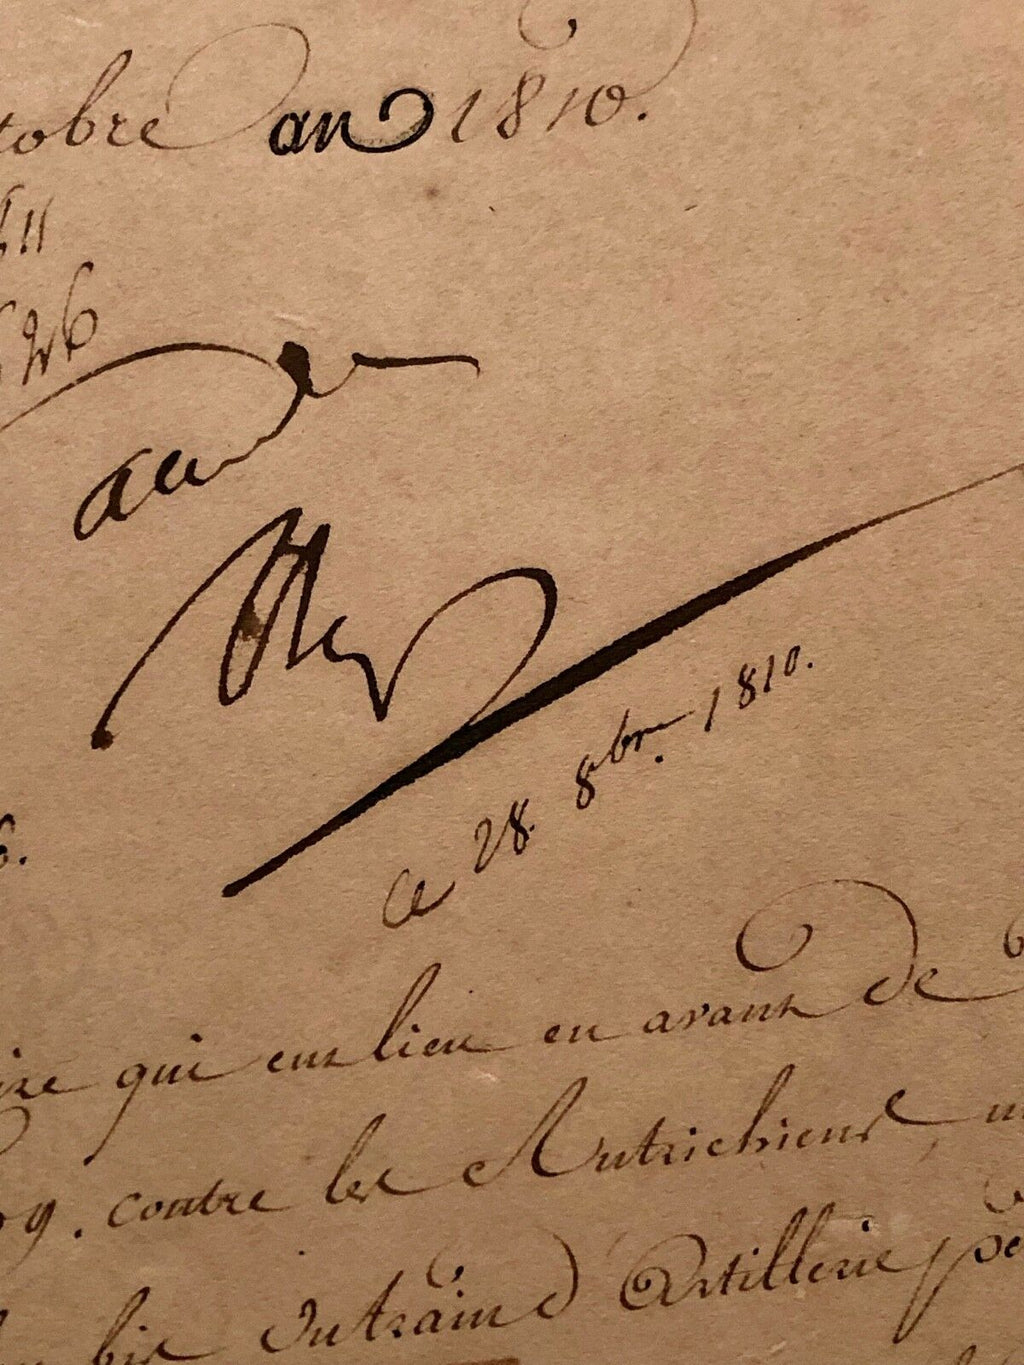 tobre an 1810.
611
526
accordé
Np
ce 28. 8bre. 1810.
6.
ire qui eut lieu en avant de
09. contre les Autrichiens, u
bis du train d'artillerie, pe